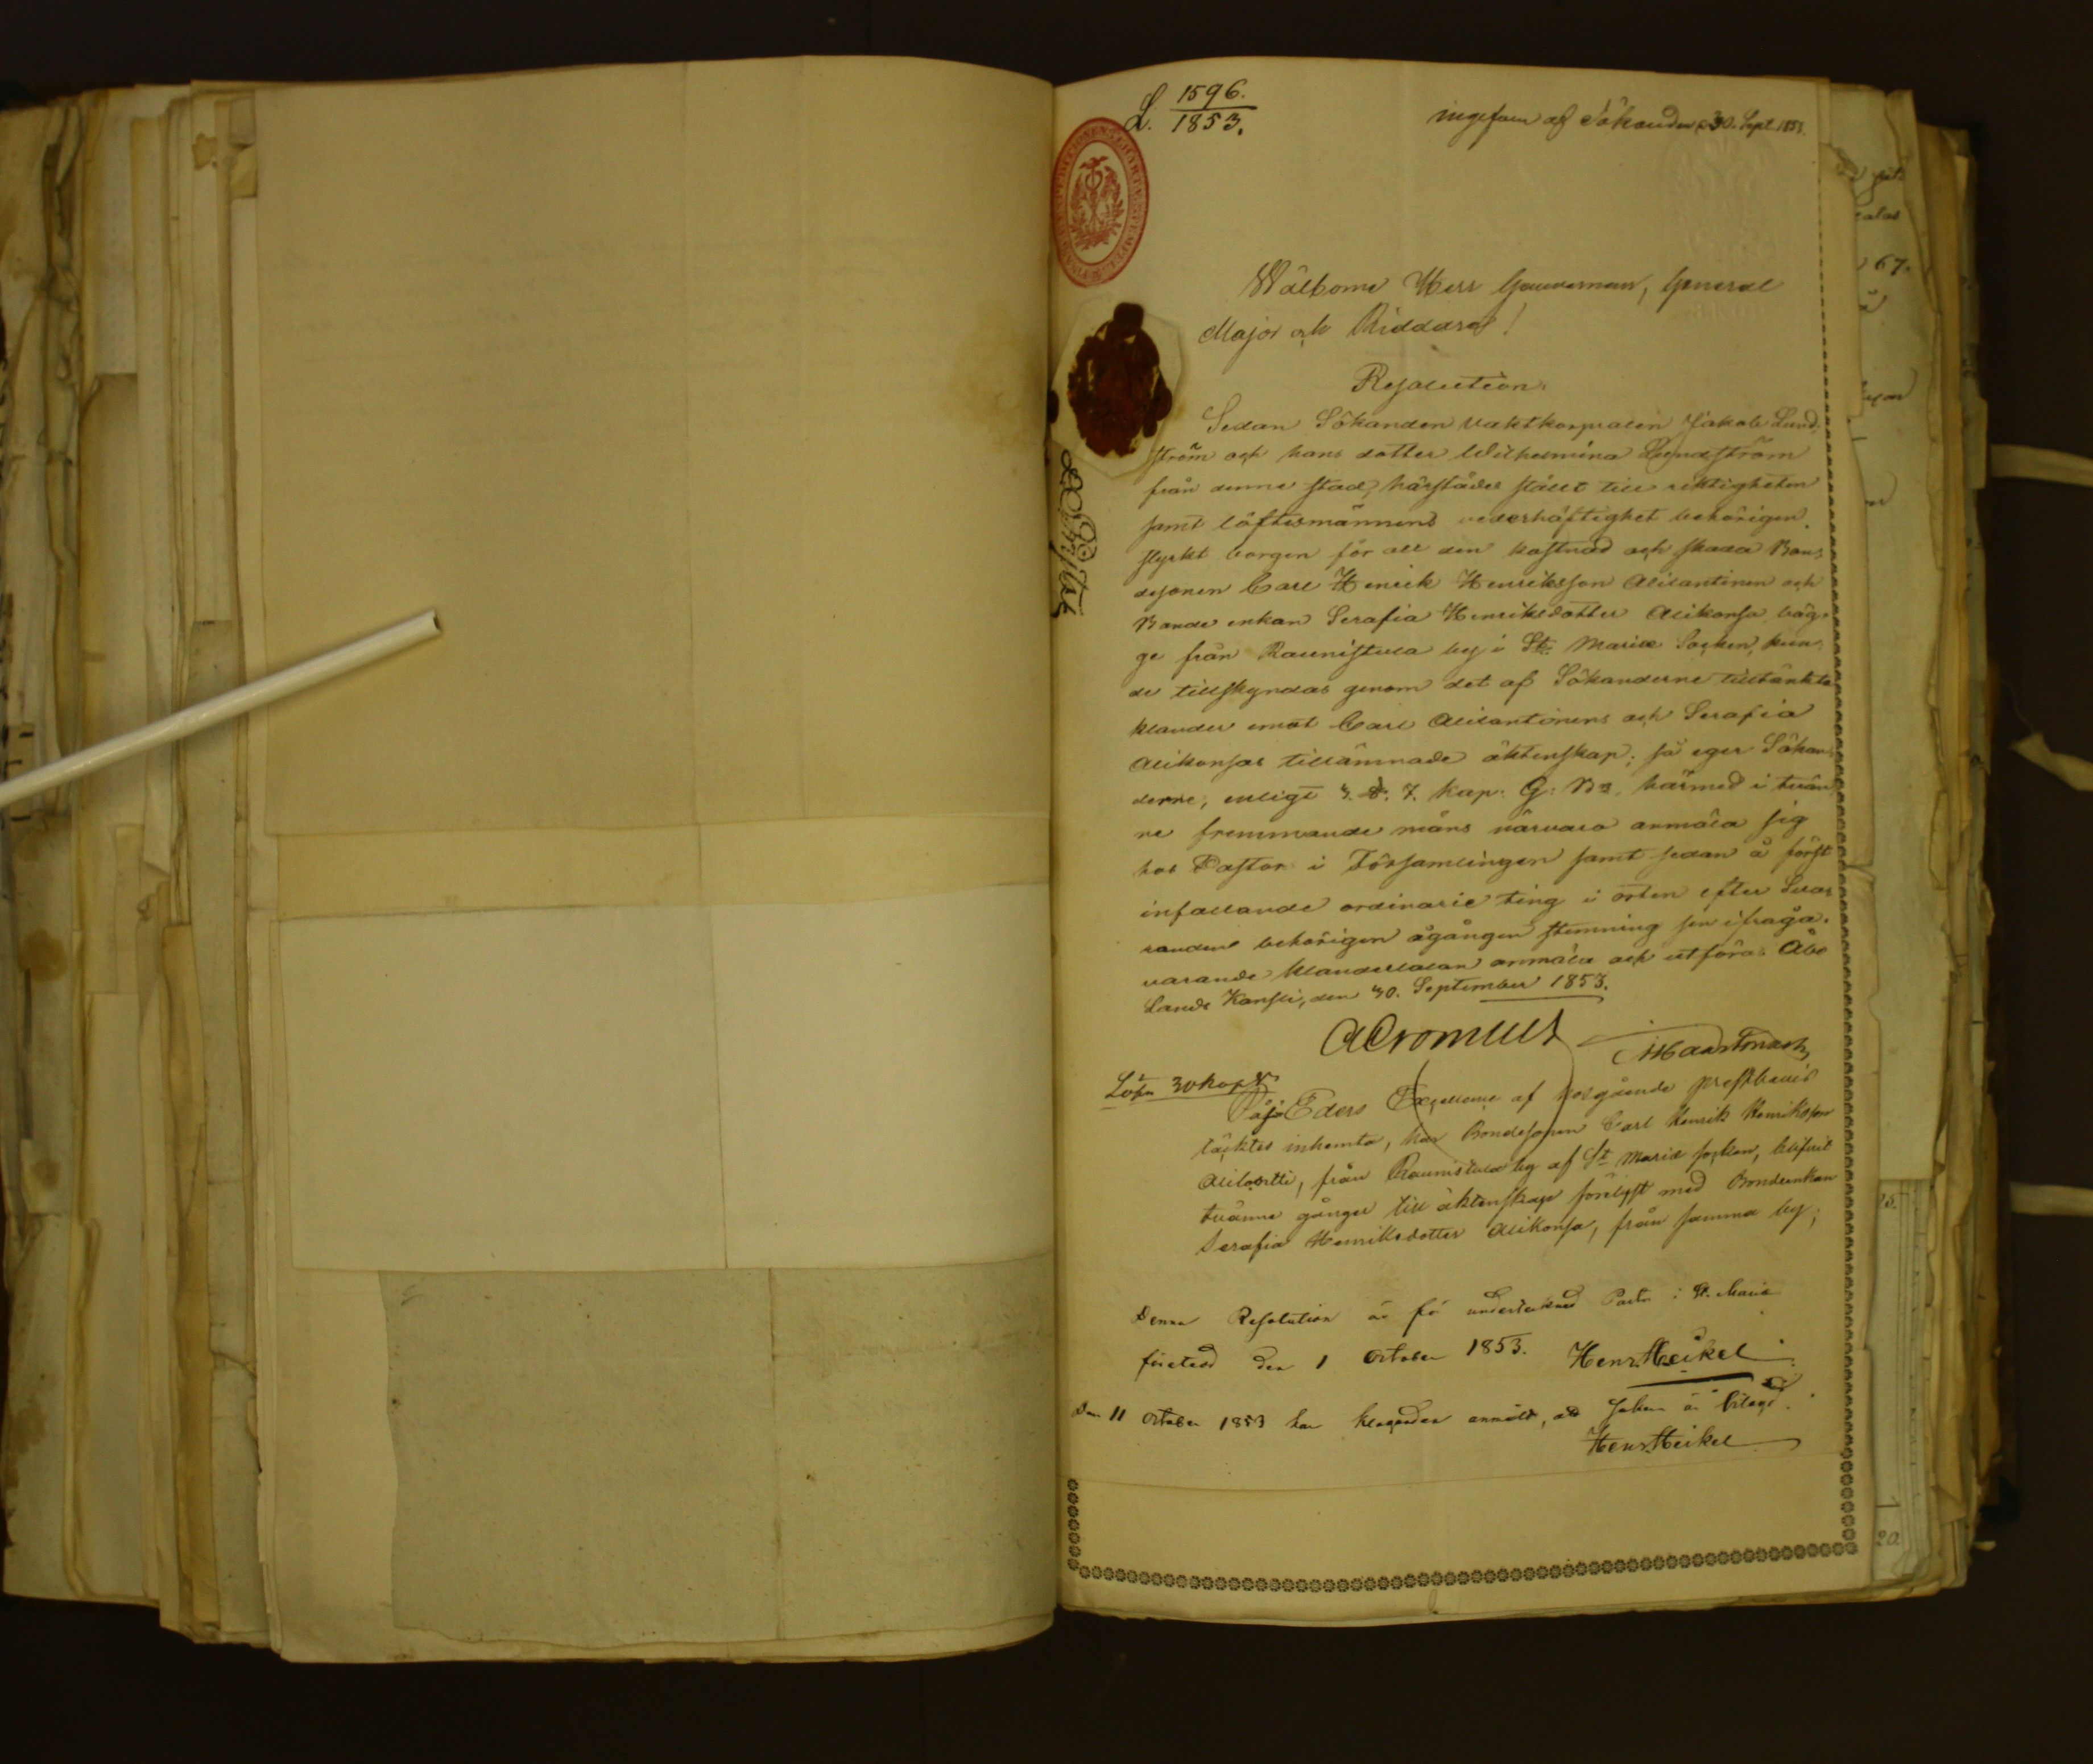 L. 1596.
1853.
ingifven af Sökanden d. 30. Sept. 1853.
Wälborne Herr Gouverneur, General
Major och Riddare!
Resolution.
Sedan Sökanden vaktkorpralen Jakob Lund,
ström och hans dotter Wilhelmina Lundström
från denne stad, härstädes stält till riktigheten
samt löftesmännens vederhäftighet behörigen
styrkt borgen för all den kostnad och skada Bon,
desonen Carl Henrik Henriksson Alilantinen och
Bonde enkan Serafia Henriksdotter Alikonsa, bäg,
ge från Raunistula by i St. Mariæ Socken, kun,
de tillskyndas genom det af Sökanderne tilltänkte
klander emot Carl Alilantinens och Serafia
Alikonsas tillämnade äktenskap; så eger Sökan,
derne, enligt 3. §. 7. kap. G. B. härmed i tvän,
ne fremmande mäns närvaro anmäla sig
hos Pastor i Församlingen samt sedan å först
infallande ordinarie ting i orten efter Sva,
randen behörigen ågången stemning sin ifråga,
varande klandertalan anmäla och utföra. Åbo
Lands Kansli, den 30. September 1853.
ACromwell
Lösn 30 kop. Sr
På Eders Excellence af hosgående prestbevis
täcktes inhemta, har Bondesonen Carl Henrik Henriksson
från Raunistula by af St Mariæ socken, blifvit
tvänne gånger till äktenskap förelyst med Bondeenkan
Serafia Henriksdotter Alikonsa, från samma by;
Denna Resolution är för undertecknad Pastor i St. Marie
företedd den 1 October 1853. Henr. Heikel
Den 11 October 1853 har klaganden anmält, att saken är bilagd.
Henr. Heikel